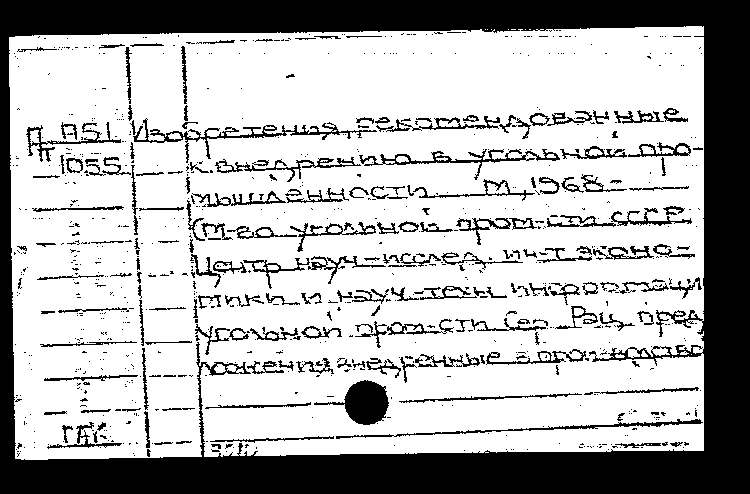 П 951 Изобретения, рекомендованные
1055 к внедрению в угольной про-
мышленности. М, 1968-
(М-во угольной пром-сти СССР.
Центр науч-исслед. ин-т эконо-
мики и науч-техн информации
угольной пром-сти Сер. Рац. пред
ложения, внедренные в произ-водство
ГАК